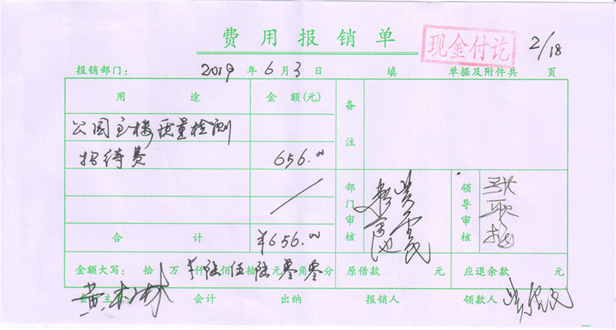 费用报销单
现金付讫
2/18
报销部门： 2019年6月3日 填 单据及附件共 页
用途 金额(元) 备注
公园主楼质量检测
招待费 656.00
部门审核 领导审核
合计 ¥656.00
金额大写： 拾 万 仟陆佰伍拾陆元零角零分 原借款 元 应退余款 元
主 会计 出纳 报销人 领款人